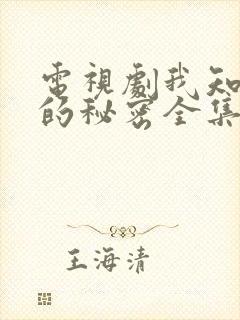 電視劇我知
的秘密全集
王海清